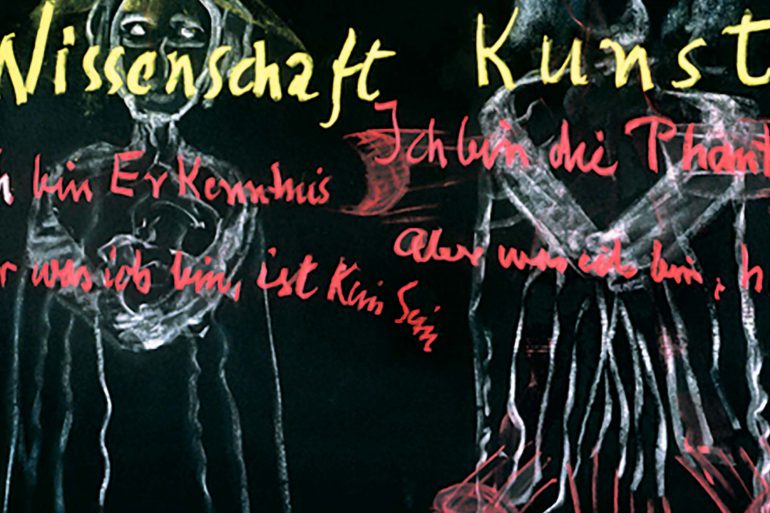 Wissenschaft
Kunst
h bin Erkenntnis
r was ich bin, ist Kein Sein
Ich bin die Phant
Aber was ich bin, h